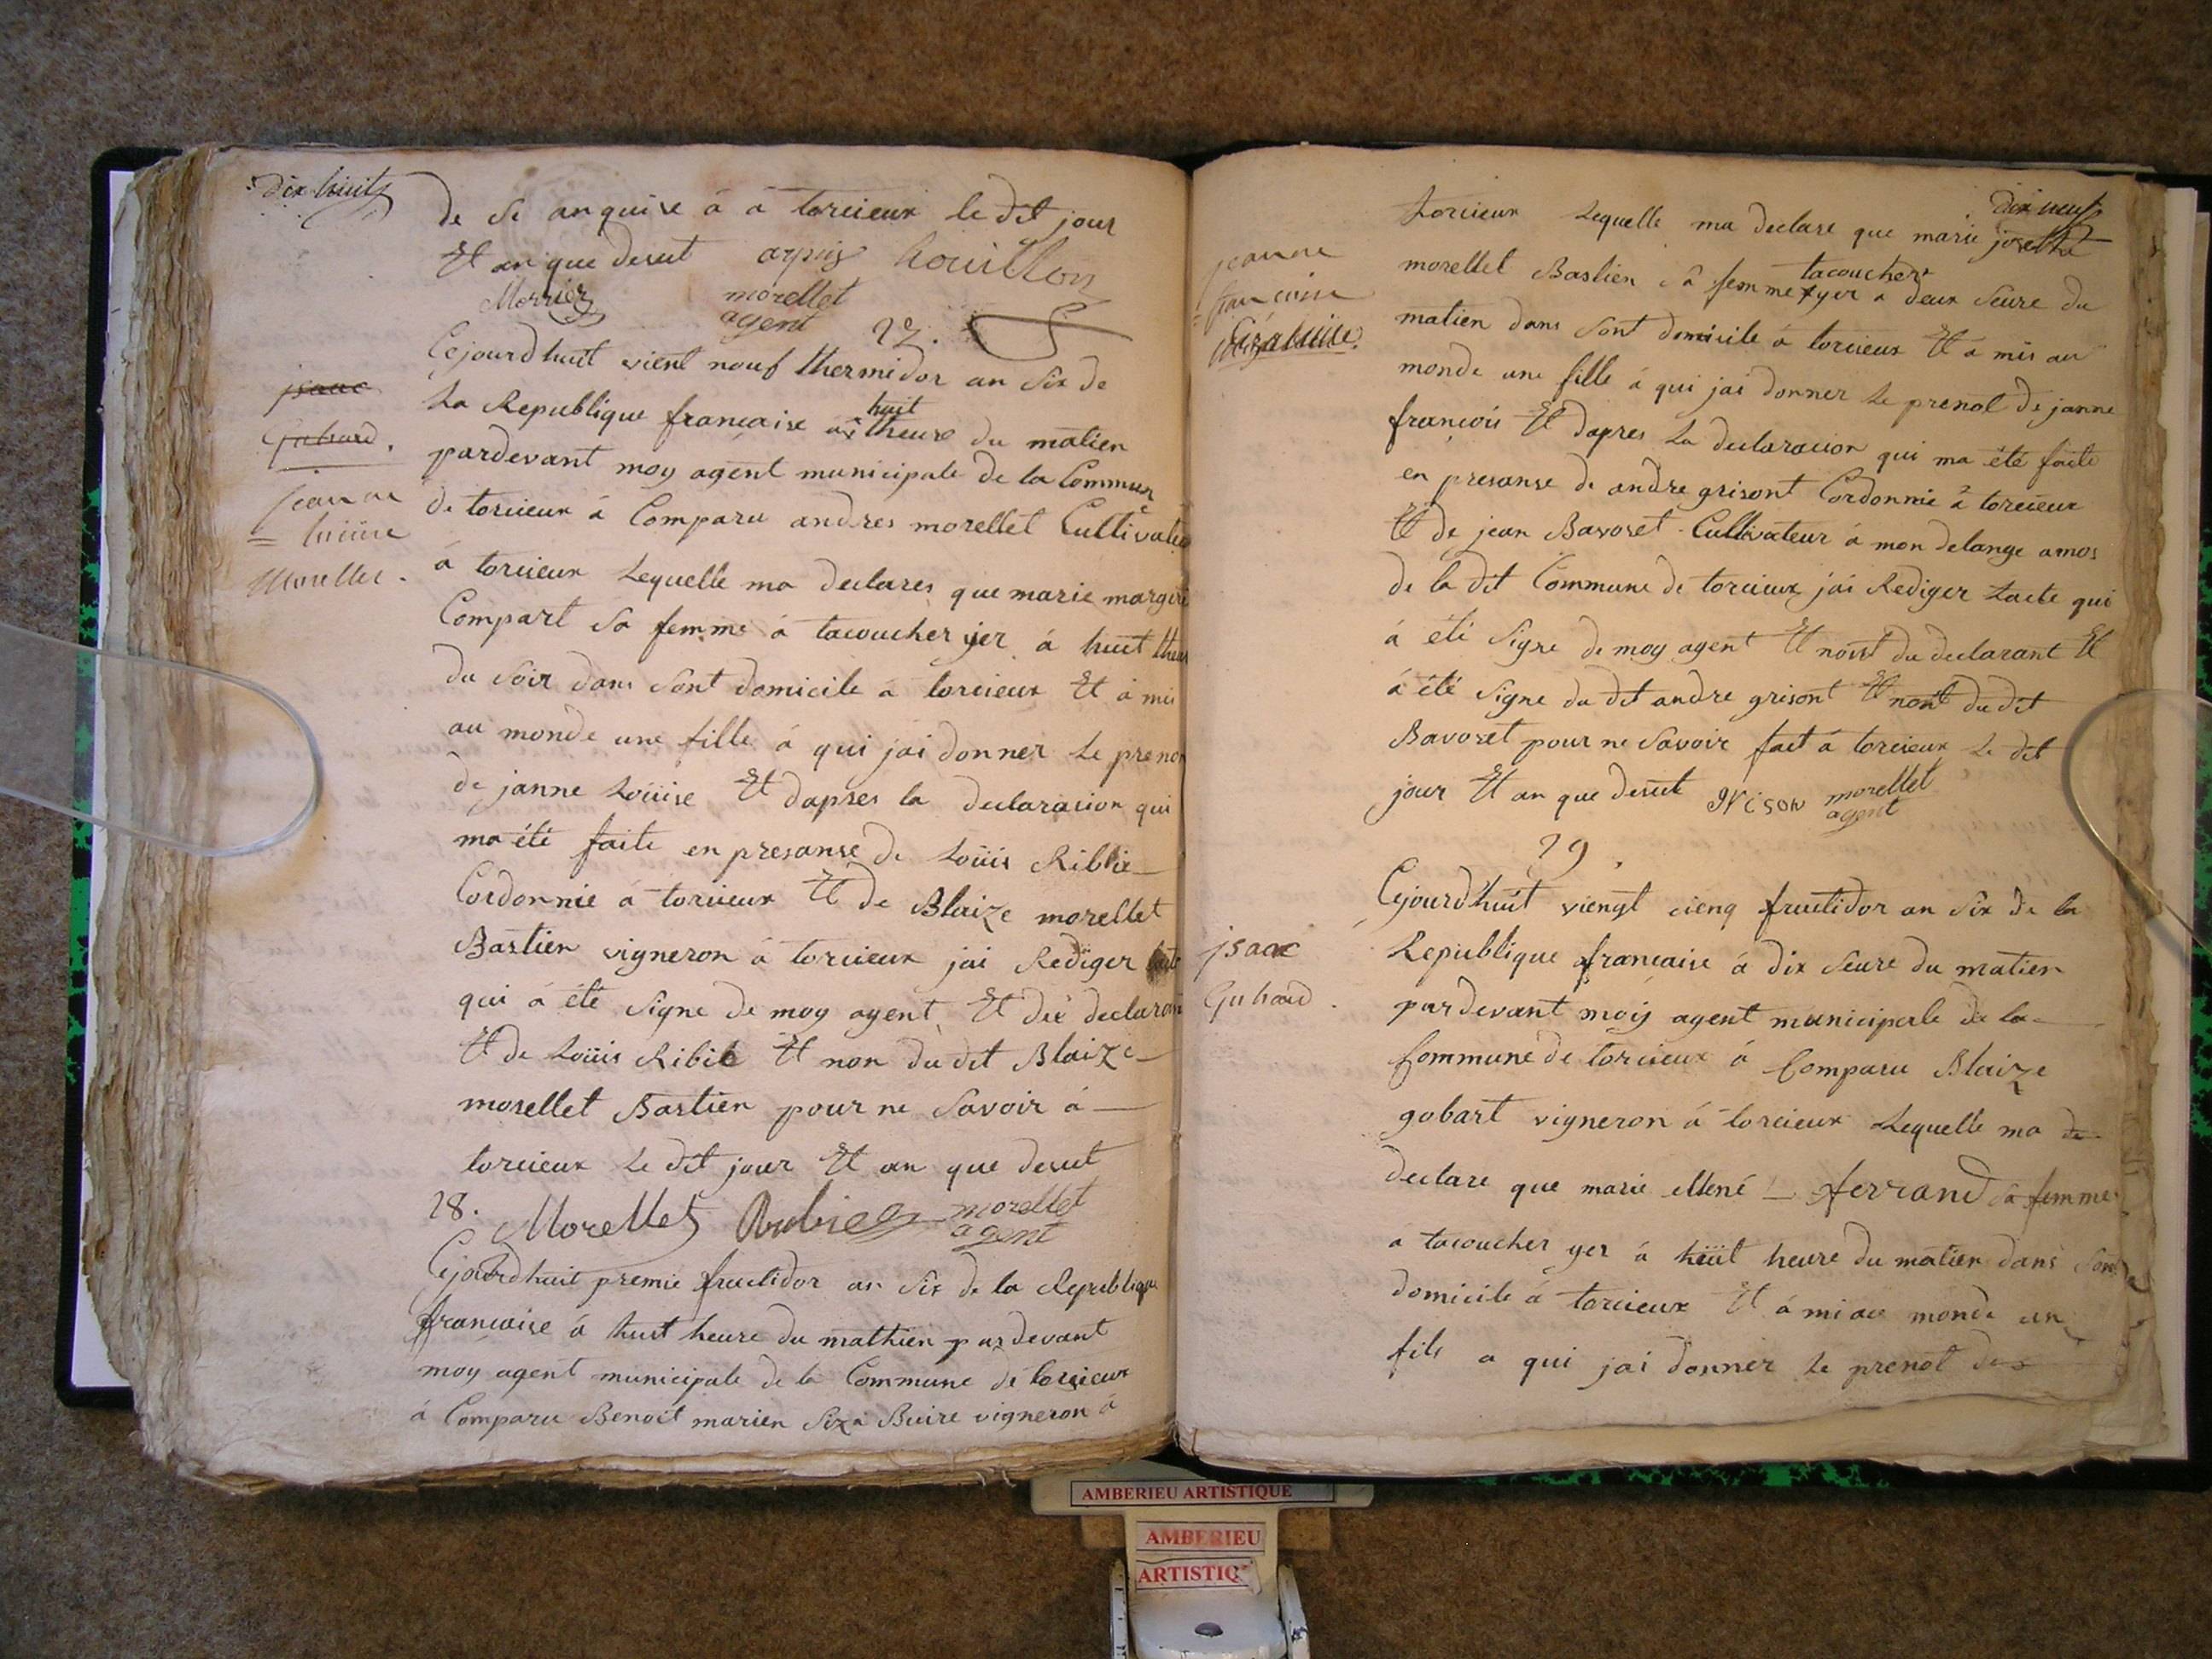 dix huit
de se anquise á á torcieux le dit jour
Et an que desut arpis houillon
Merrier morellet
agent
27.
Cejourdhuit vient nouf thermidor an Six de
La Republique francaise a huit theure du matien
pardevant moy agent municipale de la Commune
de torcieux á Comparu andres morellet Cultivateu
á torcieux Lequelle ma declares que marie margeri
Compart Sa femme á tacoucher yer á huit theur
du Soir dans Sont domicile á torcieux Et á mis
au monde une fille á qui jai donner Le prenon
de janne Loüise Et dapres la declaracion qui
ma été faite en presanse de Loüis Ribie
Cordonnie á torcieux Et de Blaize morellet
Bastien vigneron á torcieux jai Rediger
qui á été Signe de moy agent Et du declaran
Et de Loüis Ribie Et non du dit Blaize
morellet Bastien pour ne Savoir á
torcieux Le dit jour Et an que desut
28. Morellet Rubier morellet
agent
Cejourdhuit premie fructidor an Six de la Republique
francaise á huit heure du mathien pardevant
moy agent municipale de la Commune de torcieux
á Comparu Benoit marien Siza Buire vigneron á
jsaac
Gubard.
jeanne
= luiise
Morellet.
dix neuf
torcieux Lequelle ma declare que marie josethe
morellet Bastien Sâ femme tacoucher yer a deux Seure du
matien dans Sont domicile á torcieux Et á mis au
monde une fille á qui jai donner Le prenot de janne
francois Et dapres La declaracion qui ma été faite
en presanse de andre grisont Cordonnie á torcieux
Et de jean Bavoset Cultivateur á mon delange amos
de la dit Commune de torcieux jai Rediger Lacte qui
á été Signe de moy agent Et nont du declarant Et
á été Signe du dit andre grisont Et nont du dit
Bavozet pour ne Savoir fait á torcieux Le dit
jour Et an que desut grison morellet
agent
29.
Cejourdhuit viengt cienq fructidor an Six de la
Republique francaise á dix Seure du matien
pardevant moy agent municipale de la
Commune de torcieux á Comparu Blaize
gobart vigneron á torcieux Lequelle ma de
declare que marie ferrand sa femme
á tacoucher yer á hüit heure du matien dans Son
domicile á torcieux Et á mi au monde un
fils a qui jai donner Le prenot de
jeanne
francoise
jsaac
Gubard.
AMBERIEU ARTISTIQUE
AMBERIEU
ARTISTIQ